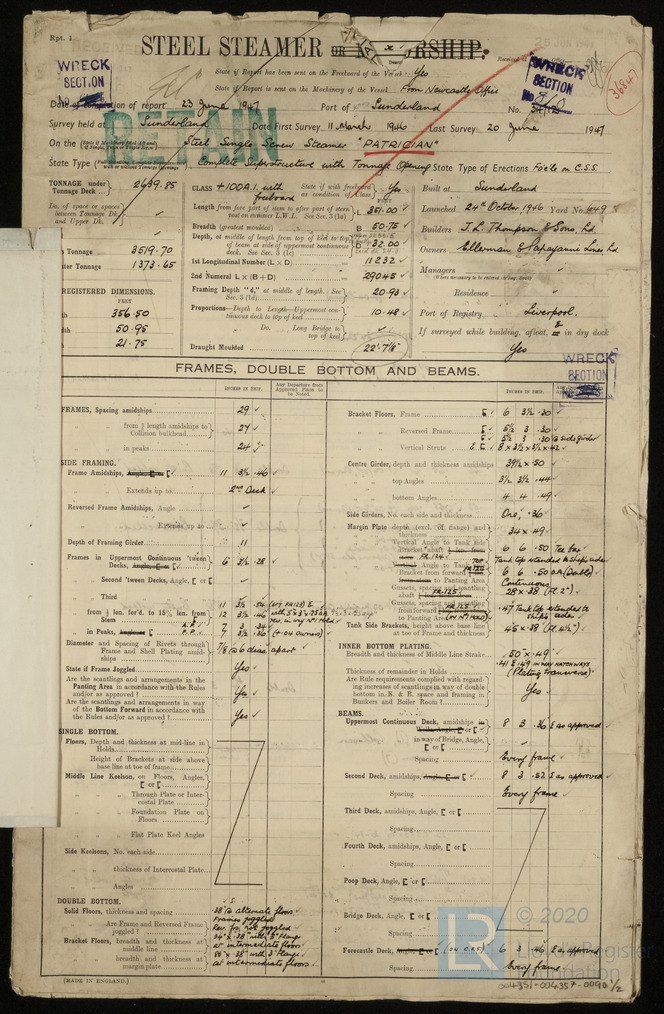 Rpt. 1
STEEL STEAMER OR MOTORSHIP.
State if Report has been sent on the Freeboard of the Vessel Yes
State if Report is sent on the Machinery of the Vessel From Newcastle Office
WRECK SECTION
WRECK SECTION
RETAIN
36847
Date of completion of report 23 June 1947 Port of Sunderland No.
Survey held at Sunderland Date First Survey 11 March 1946 Last Survey 20 June 1947
On the Steel Single Screw Steamer "PATRICIAN"
State Type Complete Superstructure with Tonnage Opening State Type of Erections Fo'c'le on C.S.S.
TONNAGE under Tonnage Deck ... 2639.85
Do. of space or spaces between Tonnage Dk. and Upper Dk.
Tonnage 3519.70
1373.65
REGISTERED DIMENSIONS.
FEET
356.50
50.95
21.75
CLASS +100A.1. with freeboard State if with freeboard as condition of Class Yes
Length from fore part of stem to after part of stern post on summer L.W.L. See Sec. 3 (1a) L 351.00
Breadth (greatest moulded) B 50.75
Depth, at middle of length from top of keel to top of beam at side of uppermost continuous deck. See Sec. 3 (1c) D 32.00
1st Longitudinal Number (L × D) 11232
2nd Numeral L × (B + D) 29045
Framing Depth "d," at middle of length. See Sec. 3 (1d) 20.93
Proportions—Depth to Length—Uppermost continuous deck to top of keel 10.48
Do. Long Bridge to top of keel
Draught Moulded 22'-7⅛"
Built at Sunderland
Launched 24th October 1946 Yard No. 649
Builders J.L. Thompson & Sons, Ld
Owners Ellerman & Papayanni Lines Ld
Managers
(Where necessary to be entered in Reg. Book)
Residence
Port of Registry Liverpool.
If surveyed while building, afloat, & in dry dock
Yes
WRECK SECTION
FRAMES, DOUBLE BOTTOM AND BEAMS.
INCHES IN SHIP. Any Departure from Approved Plans to be Noted.
FRAMES, Spacing amidships 29
" from ⅕ length amidships to Collision bulkhead 27
" in peaks 24
SIDE FRAMING.
Frame Amidships, Angle, [ or [ 11 3½ .46
" Extends up to 2nd Deck
Reversed Frame Amidships, Angle
" Extends up to
Depth of Framing Girder 11
Frames in Uppermost Continuous 'tween Decks, Angle, [ or [ 6 3½ .28
" Second 'tween Decks, Angle, [ or [
" Third "
" from ⅕ len. for'd. to 15% len. from Stem 11 3½ .52
12 3½ .46
" in Peaks, Angle or [ A.P. 7 3 .34
F.P. 7 3½ .36 (+ .04 Owners)
Diameter and Spacing of Rivets through Frame and Shell Plating amidships 7/8 @ 6 dias apart
State if Frame Joggled Yes
Are the scantlings and arrangements in the Panting Area in accordance with the Rules and/or as approved? Yes
Are the scantlings and arrangements in way of the Bottom Forward in accordance with the Rules and/or as approved? Yes
SINGLE BOTTOM.
Floors, Depth and thickness at mid-line in Holds
" Height of Brackets at side above base line at toe of frame
Middle Line Keelson, on Floors, Angles, [ or [
" Through Plate or Intercostal Plate
" Foundation Plate on Floors
" Flat Plate Keel Angles
Side Keelsons, No. each side
" thickness of Intercostal Plate
" Angles
DOUBLE BOTTOM.
Solid Floors, thickness and spacing .38 @ alternate floors.
" Are Frame and Reversed Frame joggled? Frames joggled
Rev. frs. not joggled
Bracket Floors, breadth and thickness at middle line 34" × .38" with 3" flange at intermediate floors
" breadth and thickness at margin plate × .38" with 3" flange at intermediate floors
Bracket Floors, Frame [ 6 3½ .30
" Reversed Frame [ 5½ 3 .30
5½ 3 .30 @ side girder
" Vertical Struts [ 8 × 3½ × 3½ × .42
Centre Girder, depth and thickness amidships 39½ × .50
" top Angles 3½ 3½ .44
" bottom Angles 4 4 .49
Side Girders, No. each side and thickness One, .36
Margin Plate depth (excl. of flange) and thickness 34 × .49
" Vertical Angle to Tank side Bracket 6 6 .50 Tee bar
Tank top extended to ship's side
6 6 .50 (Double)
Continuous
28 × .38 (Fl. 2")
.47 Tank top extended to ship's side
Tank Side Brackets, height above base line at toe of Frame and thickness 45 × .38 (Fl. 4½")
INNER BOTTOM PLATING.
Breadth and thickness of Middle Line Strake .50 × .49
Thickness of remainder in Holds .41 & .49 IN WAY HATCHWAYS
(Plating transverse)
Are Rule requirements complied with regarding increases of scantlings in way of double bottom in E. & B. space and framing in Bunkers and Boiler Room? Yes
BEAMS.
Uppermost Continuous Deck, amidships 8 3 .36 & as approved
" in way of Bridge, Angle, [ or [
Spacing Every frame
Second Deck, amidships, Angle, [ or [ 8 3 .52 & as approved
Spacing Every frame
Third Deck, amidships, Angle, [ or [
Spacing
Fourth Deck, amidships, Angle, [ or [
Spacing
Poop Deck, Angle, [ or [
Spacing
Bridge Deck, Angle, [ or [
Spacing
Forecastle Deck, Angle, [ or [ 6 3 .46 & as approved
Spacing Every frame
(MADE IN ENGLAND.)
LR © 2020
Lloyd's Register
Foundation
004351-004357-0090 1/2